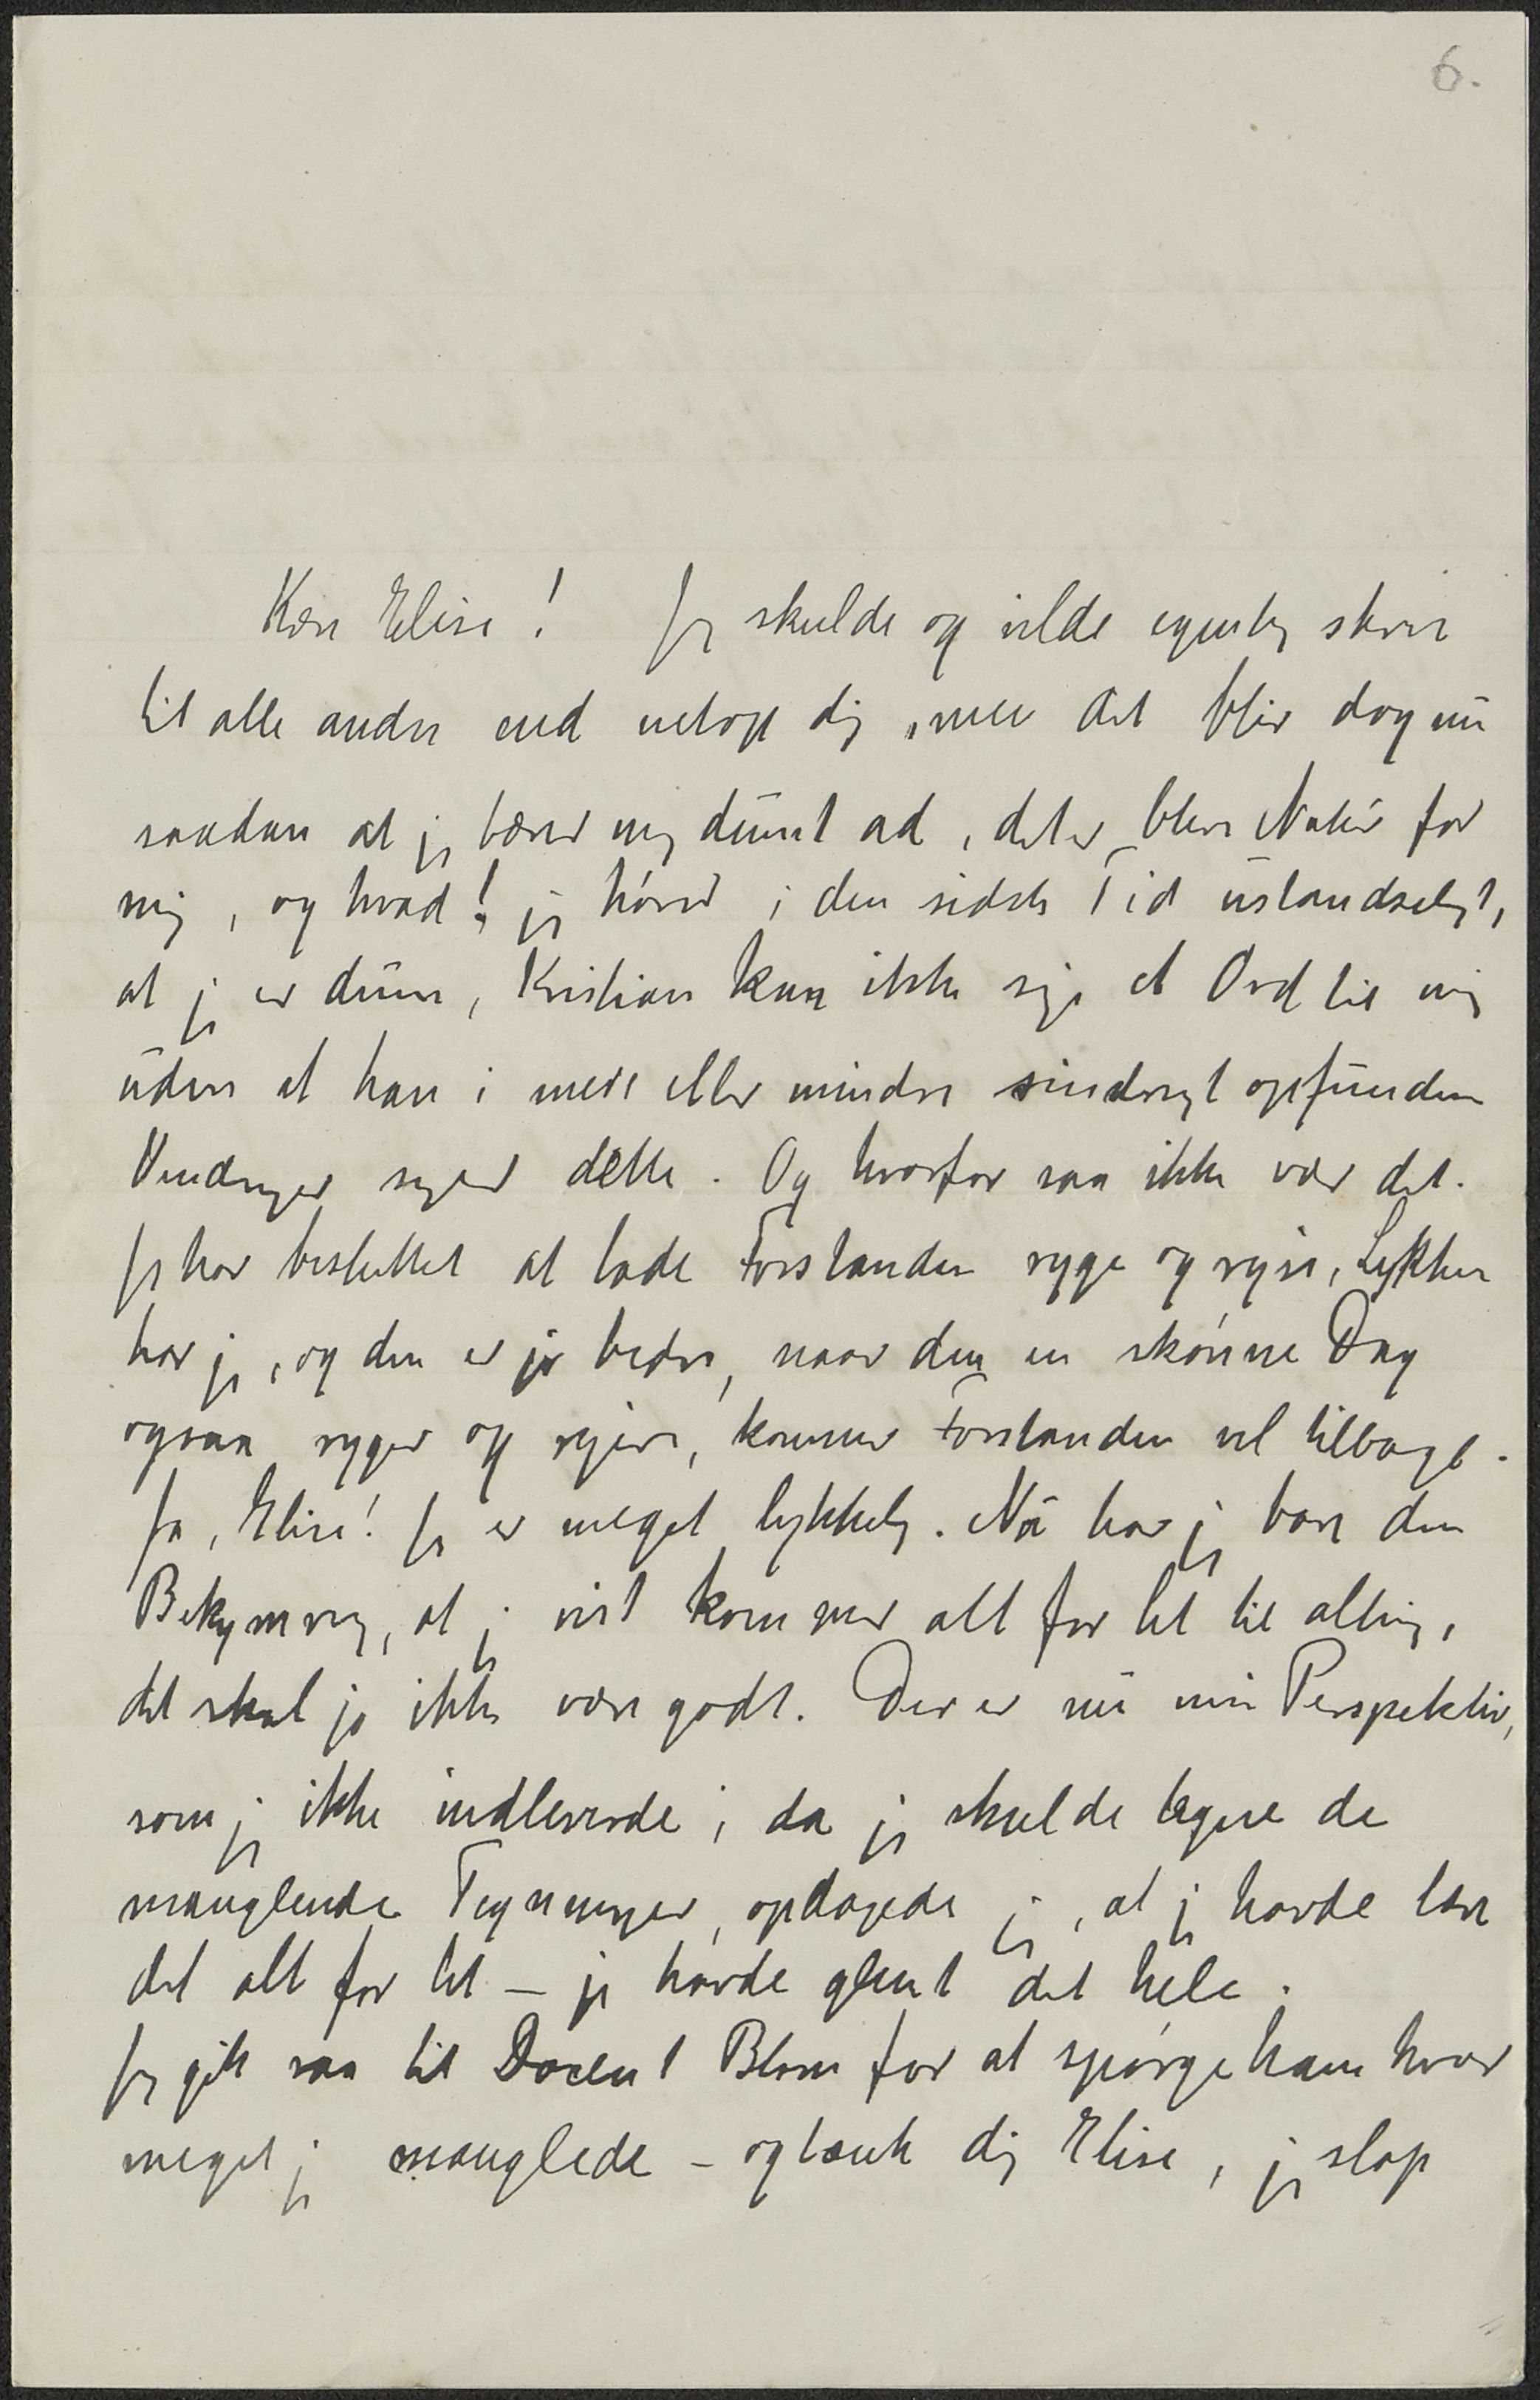 6.
Kære Elise! Jeg skulde og vilde egentlig skrive
til alle andre end netop dig, men det blir dog nu
saadan at jeg bærer mig dumt ad, det er bleve Natur for
mig, og hvad! jeg hører i den sidste Tid ustandseligt,
at jeg er dum, Kristian kan ikke sige et Ord til mig
uden at han i mere eller mindre sindrigt opfundne
Vendinger siger dette. Og hvorfor saa ikke vær det.
Jeg har besluttet at lade Forstanden ryge og rejse, Lykken
har jeg, og den er jo bedre, naar den en skønne Dag
ogsaa ryger og rejser, kommer Forstanden vel tilbage.
Ja, Elise! Jeg er meget lykkelig. Nu har jeg bare den
Bekymring, at jeg vist kommer alt for let til alting,
det skal jo ikke være godt. Der er nu min Perspektiv,
som jeg ikke indleverede, da jeg skulde tegne de
manglende Tegninger, opdagede jeg, at jeg havde lært
det alt for let – jeg havde glemt det hele.
Jeg gik saa til Docent Blom for at spørge ham hvor
meget jeg manglede – og tænk dig Elise, jeg slap